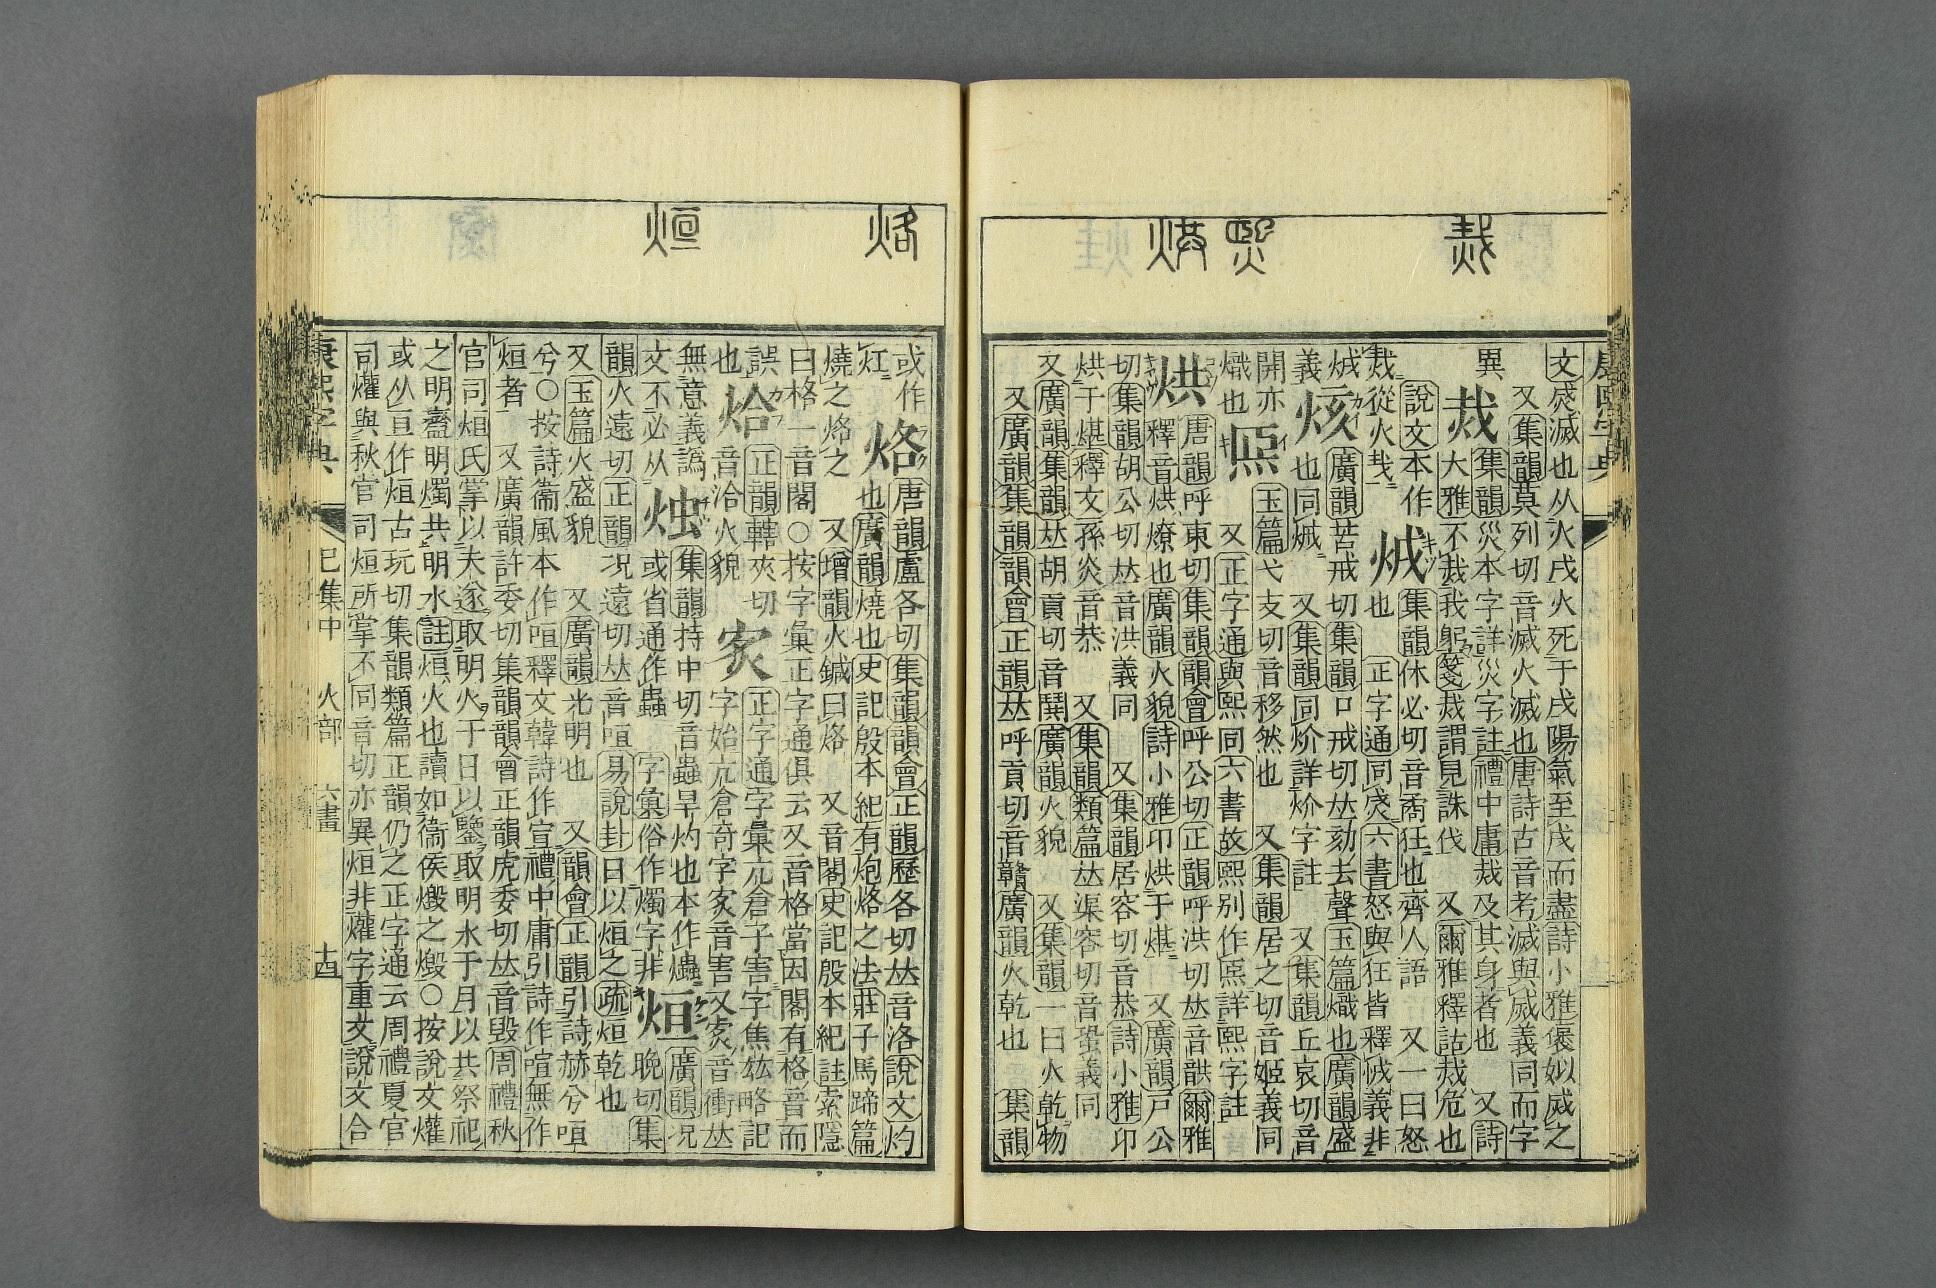 烖
煕
烘
文烕滅也从火戌火死于戌陽氣至戌而盡詩小雅褒姒烕之
又集韻莫列切音滅火滅也唐詩古音考滅與烕義同而字
異
烖
集韻災本字詳災字註禮中庸烖及其身者也 又詩
大雅不烖我躬箋烖謂見誅伐 又爾雅釋詁烖危也
說文本作
烖從火𢦏
烅
集韻休必切音矞狂也齊人語 又一曰怒
也 正字通同烕六書怒與狂皆釋烅義非
烗
廣韻苦戒切集韻口戒切𠀤劾去聲玉篇熾也廣韻盛
火也同烅 又集韻同炌詳炌字註 又集韻丘哀切音
開亦
熾也
巸
玉篇弋支切音移然也 又集韻居之切音姬義同
又正字通與熙同六書故熙別作巸詳熙字註
烘
唐韻呼東切集韻韻會呼公切正韻呼洪切𠀤音谼爾雅
釋音烘燎也廣韻火貌詩小雅卬烘于煁 又廣韻戸公
切集韻胡公切𠀤音洪義同 又集韻居容切音恭詩小雅卬
烘于煁釋文孫炎音恭 又集韻類篇𠀤渠容切音蛩義同
又廣韻集韻𠀤胡貢切音鬨廣韻火貌 又集韻一曰火乾物
又廣韻集韻韻會正韻𠀤呼貢切音贛廣韻火乾也 集韻
康熙字典
烙
烜
或作
灴
烙
唐韻盧各切集韻韻會正韻歷各切𠀤音洛說文灼
也廣韻燒也史記殷本紀有炮烙之法莊子馬蹄篇
燒之烙之 又增韻火鍼曰烙 又音閣史記殷本紀註索隱
曰格一音閣○按字彙正字通俱云又音格當因閣有格音而
誤
也
烚
正韻轄夾切
音洽火貌
𤇍
正字通字彙亢倉子害字焦竑略記
字始亢倉奇字𤇍音害又𤇍音衝𠀤
無意義譌
文不必从
烛
集韻持中切音蟲旱灼也本作爞
或省通作蟲 字彙俗作燭字非
烜
廣韻况
晚切集
韻火遠切正韻况遠切𠀤音咺易說卦日以烜之疏烜乾也
又玉篇火盛貌 又廣韻光明也 又韻會正韻引詩赫兮咺
兮○按詩衞風本作咺釋文韓詩作宣禮中庸引詩作喧無作
烜者 又廣韻許委切集韻韻會正韻虎委切𠀤音毀周禮秋
官司烜氏掌以夫遂取明火于日以鑒取明水于月以共祭祀
之明齍明燭共明水註烜火也讀如衞侯燬之燬○按說文爟
或从亘作烜古玩切集韻類篇正韻仍之正字通云周禮夏官
司爟與秋官司烜所掌不同音切亦異烜非爟字重文說文合
康熙字典 巳集中 火部 六畫 十四